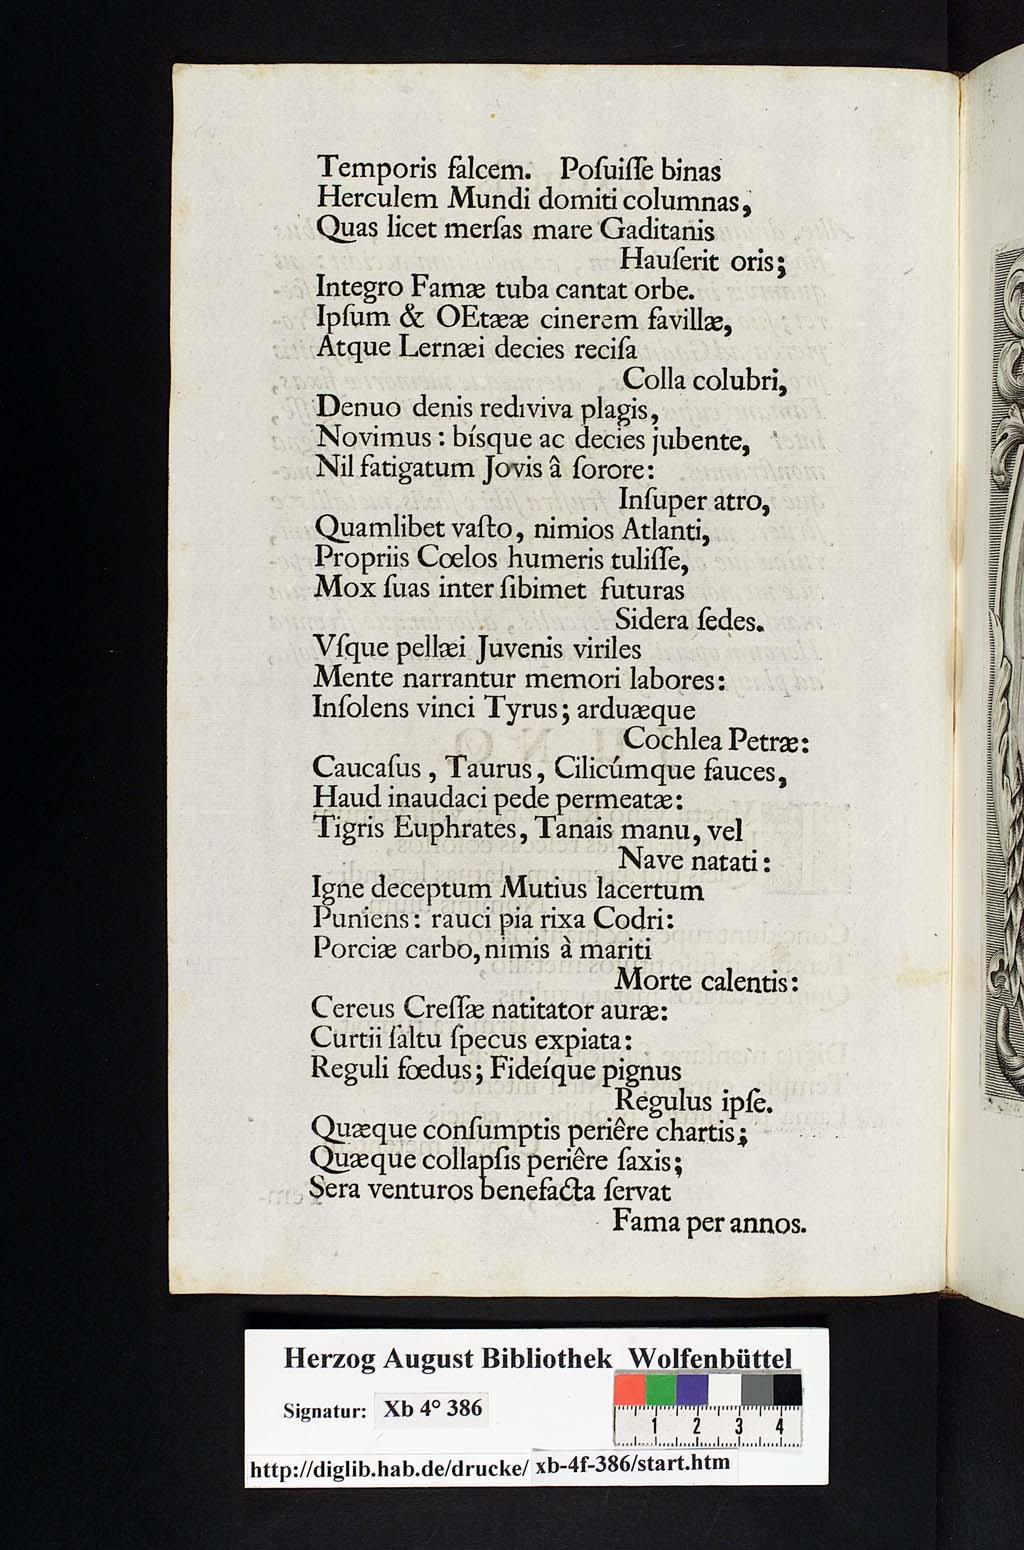 Temporis falcem. Poſuiſſe binas
Herculem Mundi domiti columnas,
Quas licet merſas mare Gaditanis
Hauſerit oris;
Integro Famæ tuba cantat orbe.
Ipſum & OEtææ cinerem favillæ,
Atque Lernæi decies reciſa
Colla colubri,
Denuo denis rediviva plagis,
Novimus: bíſque ac decies jubente,
Nil fatigatum Jovis â ſorore:
Inſuper atro,
Quamlibet vaſto, nimios Atlanti,
Propriis Cœlos humeris tuliſſe,
Mox ſuas inter ſibimet futuras
Sidera ſedes.
Vſque pellæi Juvenis viriles
Mente narrantur memori labores:
Inſolens vinci Tyrus; arduæque
Cochlea Petræ:
Caucaſus, Taurus, Cilicúmque fauces,
Haud inaudaci pede permeatæ:
Tigris Euphrates, Tanais manu, vel
Nave natati:
Igne deceptum Mutius lacertum
Puniens: rauci pia rixa Codri:
Porciæ carbo, nimis à mariti
Morte calentis:
Cereus Creſſæ natitator auræ:
Curtii ſaltu ſpecus expiata:
Reguli fœdus; Fideíque pignus
Regulus ipſe.
Quæque conſumptis periêre chartis;
Quæque collapſis periêre ſaxis;
Sera venturos benefacta ſervat
Fama per annos.
Herzog August Bibliothek Wolfenbüttel
Signatur: Xb 4° 386
1 2 3 4
http://diglib.hab.de/drucke/ xb-4f-386/start.htm